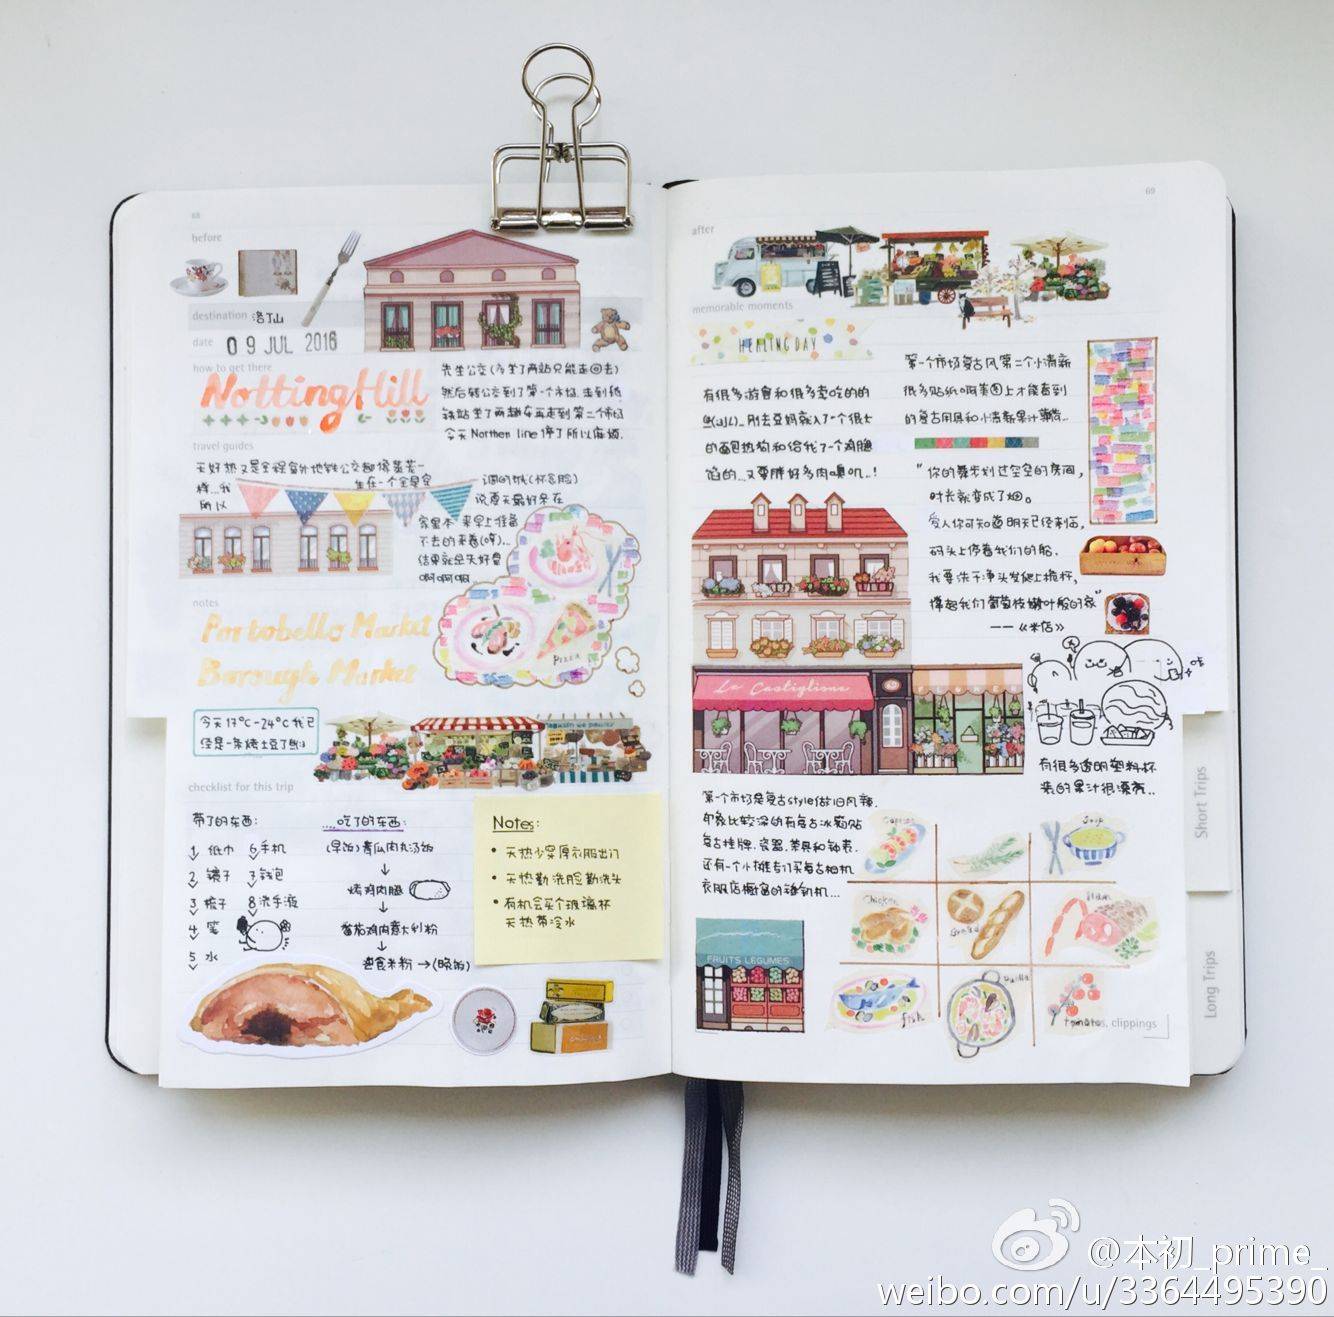 68
before
destination 洛丁山
date 09 JUL 2016
how to get there
Notting Hill
先坐公交(多坐了两站只能走回去)
然后转公交到了第一个市场.走到纸
铁站坐了两趟车再走到第二个市场
今天 Northen line 停了所以麻烦.
travel guides
天好热又是全程室外地铁公交都像蒸笼一
样...我
所以
生在一个全是空
调的城(怀念脸)
说夏天最好呆在
家里不
来早上准备
不去的来着(哼)...
结果就是天好晒
啊啊啊
notes
Portobello Market
Borough Market
PIZZA
今天17°C-24°C我已
经是一朵烤土豆了
checklist for this trip
带了的东西:
1 纸巾 6 手机
2 镜子 7 钱包
3 梳子 8 洗手液
4 笔
5 水
...吃了的东西:
(早饭)青瓜肉丸汤饭
烤鸡肉腿
番茄鸡肉意大利粉
速食米粉→(晚饭)
Notes:
• 天热少穿厚衣服出门
• 天热勤洗脸勤洗头
• 有机会买个玻璃杯
天热带冷水
69
after
memorable moments
HEALING DAY
有很多游客和很多卖吃的的
刚去豆妈就入了一个很长
的面包热狗和给我了一个鸡腿
馅的...又要胖好多肉噢叽..!
第一个市场复古风第二个小清新
很多贴纸啊美图上才能看到
的复古用具和小清新果汁
“你的舞步划过空空的房间,
时光就变成了烟。
爱人你可知道明天已经来临,
码头上停着我们的船.
我要洗干净头发爬上桅杆,
撑起我们葡萄枝嫩叶般的家”
——《米店》
La Castiglione
咔
有很多透明塑料杯
装的果汁很漂亮..
第一个市场是复古style做旧风辣.
印象比较深的有复古冰箱贴
复古挂牌、瓷器、茶具和钟表.
还有一个小摊专门买复古相机
衣服店橱窗的缝纫机...
FRUITS LEGUMES
Caprese
Soup
Chicken
Bread
Ham
fish
Paella
tomatos, clippings
Short Trips
Long Trips
@本初_prime_
weibo.com/u/3364495390